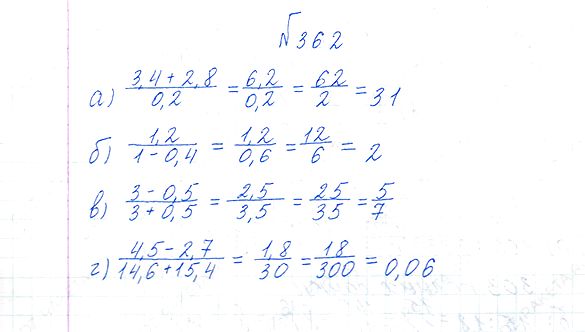 №362
а) (3,4 + 2,8)/0,2 = 6,2/0,2 = 62/2 = 31
б) 1,2/(1 - 0,4) = 1,2/0,6 = 12/6 = 2
в) (3 - 0,5)/(3 + 0,5) = 2,5/3,5 = 25/35 = 5/7
г) (4,5 - 2,7)/(14,6 + 15,4) = 1,8/30 = 18/300 = 0,06